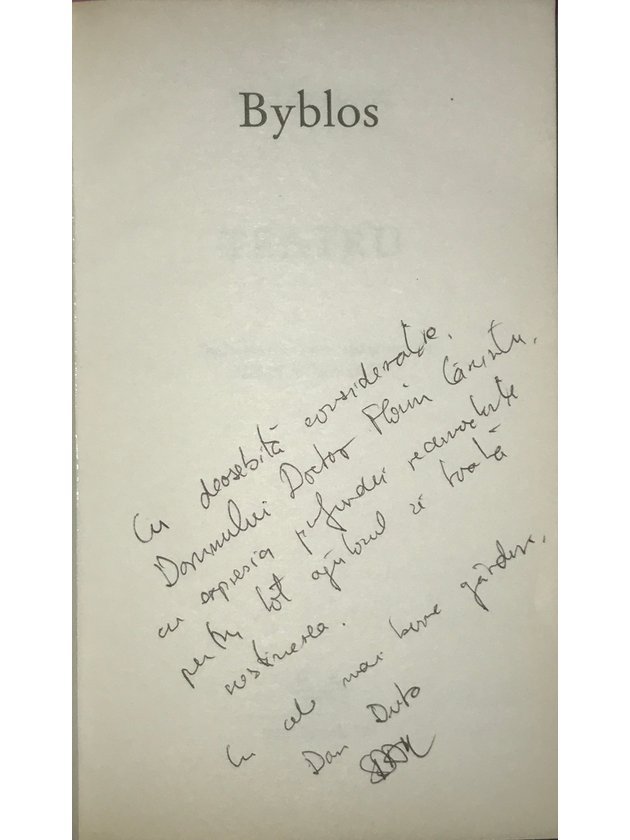 Byblos
Cu deosebită considerație,
Domnului Doctor Florin
cu expresia profundei recunoștințe
pentru tot ajutorul și toată
susținerea.
Cu cele mai bune gânduri,
Dan Duta